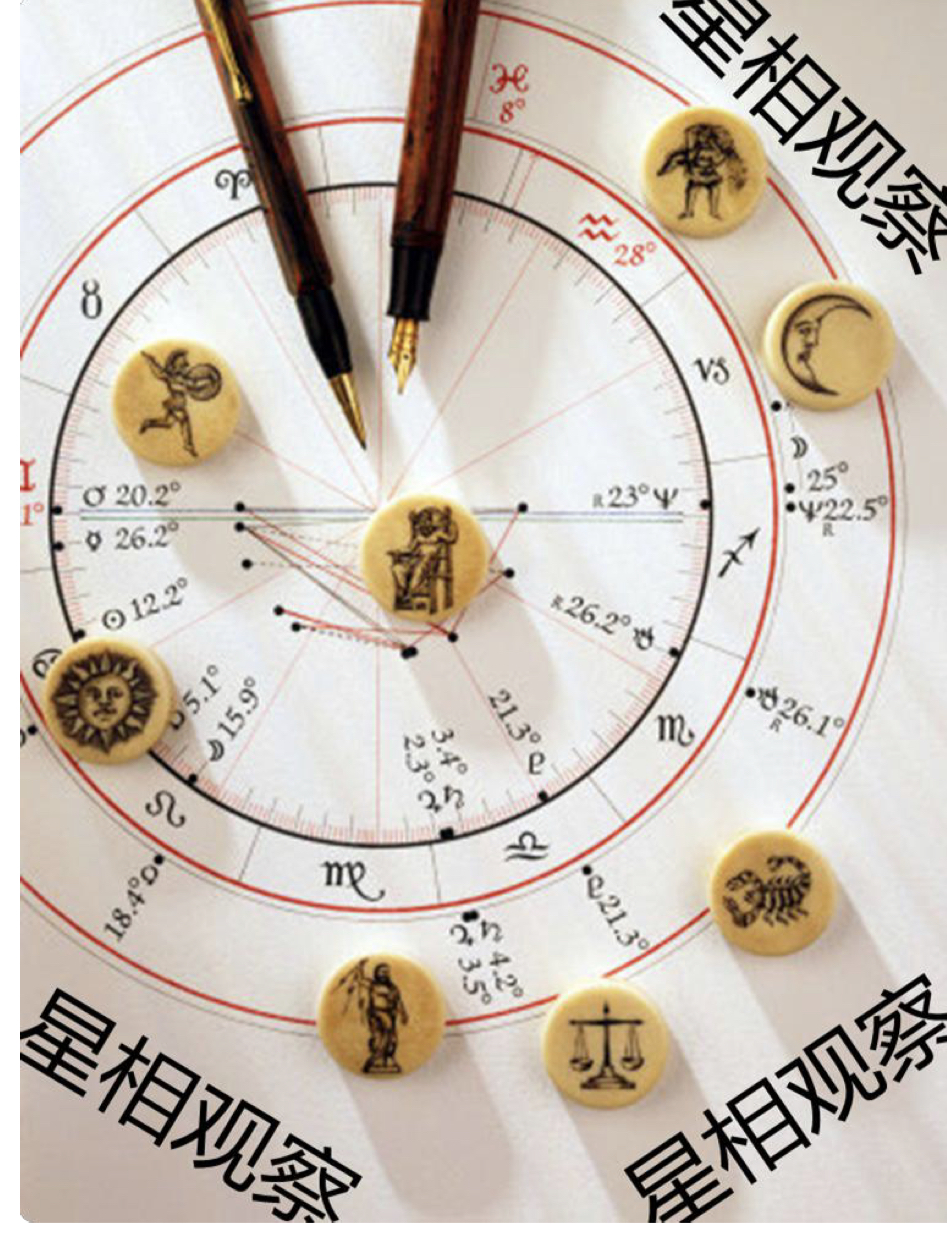 星相观察
♓
8°
♈
♒
28°
♉
♑
☽
25°
♂ 20.2°
R 23° ♆
♆ 22.5°
R
1°
☿ 26.2°
♐
☉ 12.2°
R 26.2° ♅
5.1°
☽ 15.9°
♅ 26.1°
R
21.3° ♇
♏
3.4° ♄
2.3° ♃
♌
♎
♍
18.4°
♇ 21.3°
♄ 4.2°
♃ 3.5°
星相观察
星相观察